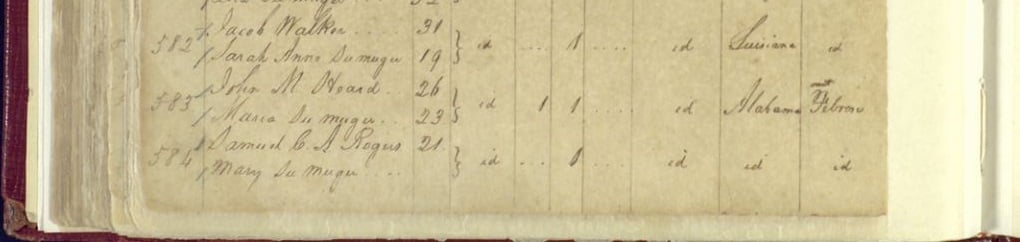 su muger . . . 32
582 Jacob Walker . . . . 31
Sarah Anne su muger 19 } id . . . . 1 . . . . id Luisiana id
583 John M Heard . . 26
Maria su muger . . 23 } id 1 1 . . . . id Alabama Febrero
584 Samuel C. A Rogers 21
Mary su muger . . . . } id . . . 1 . . . . id id id